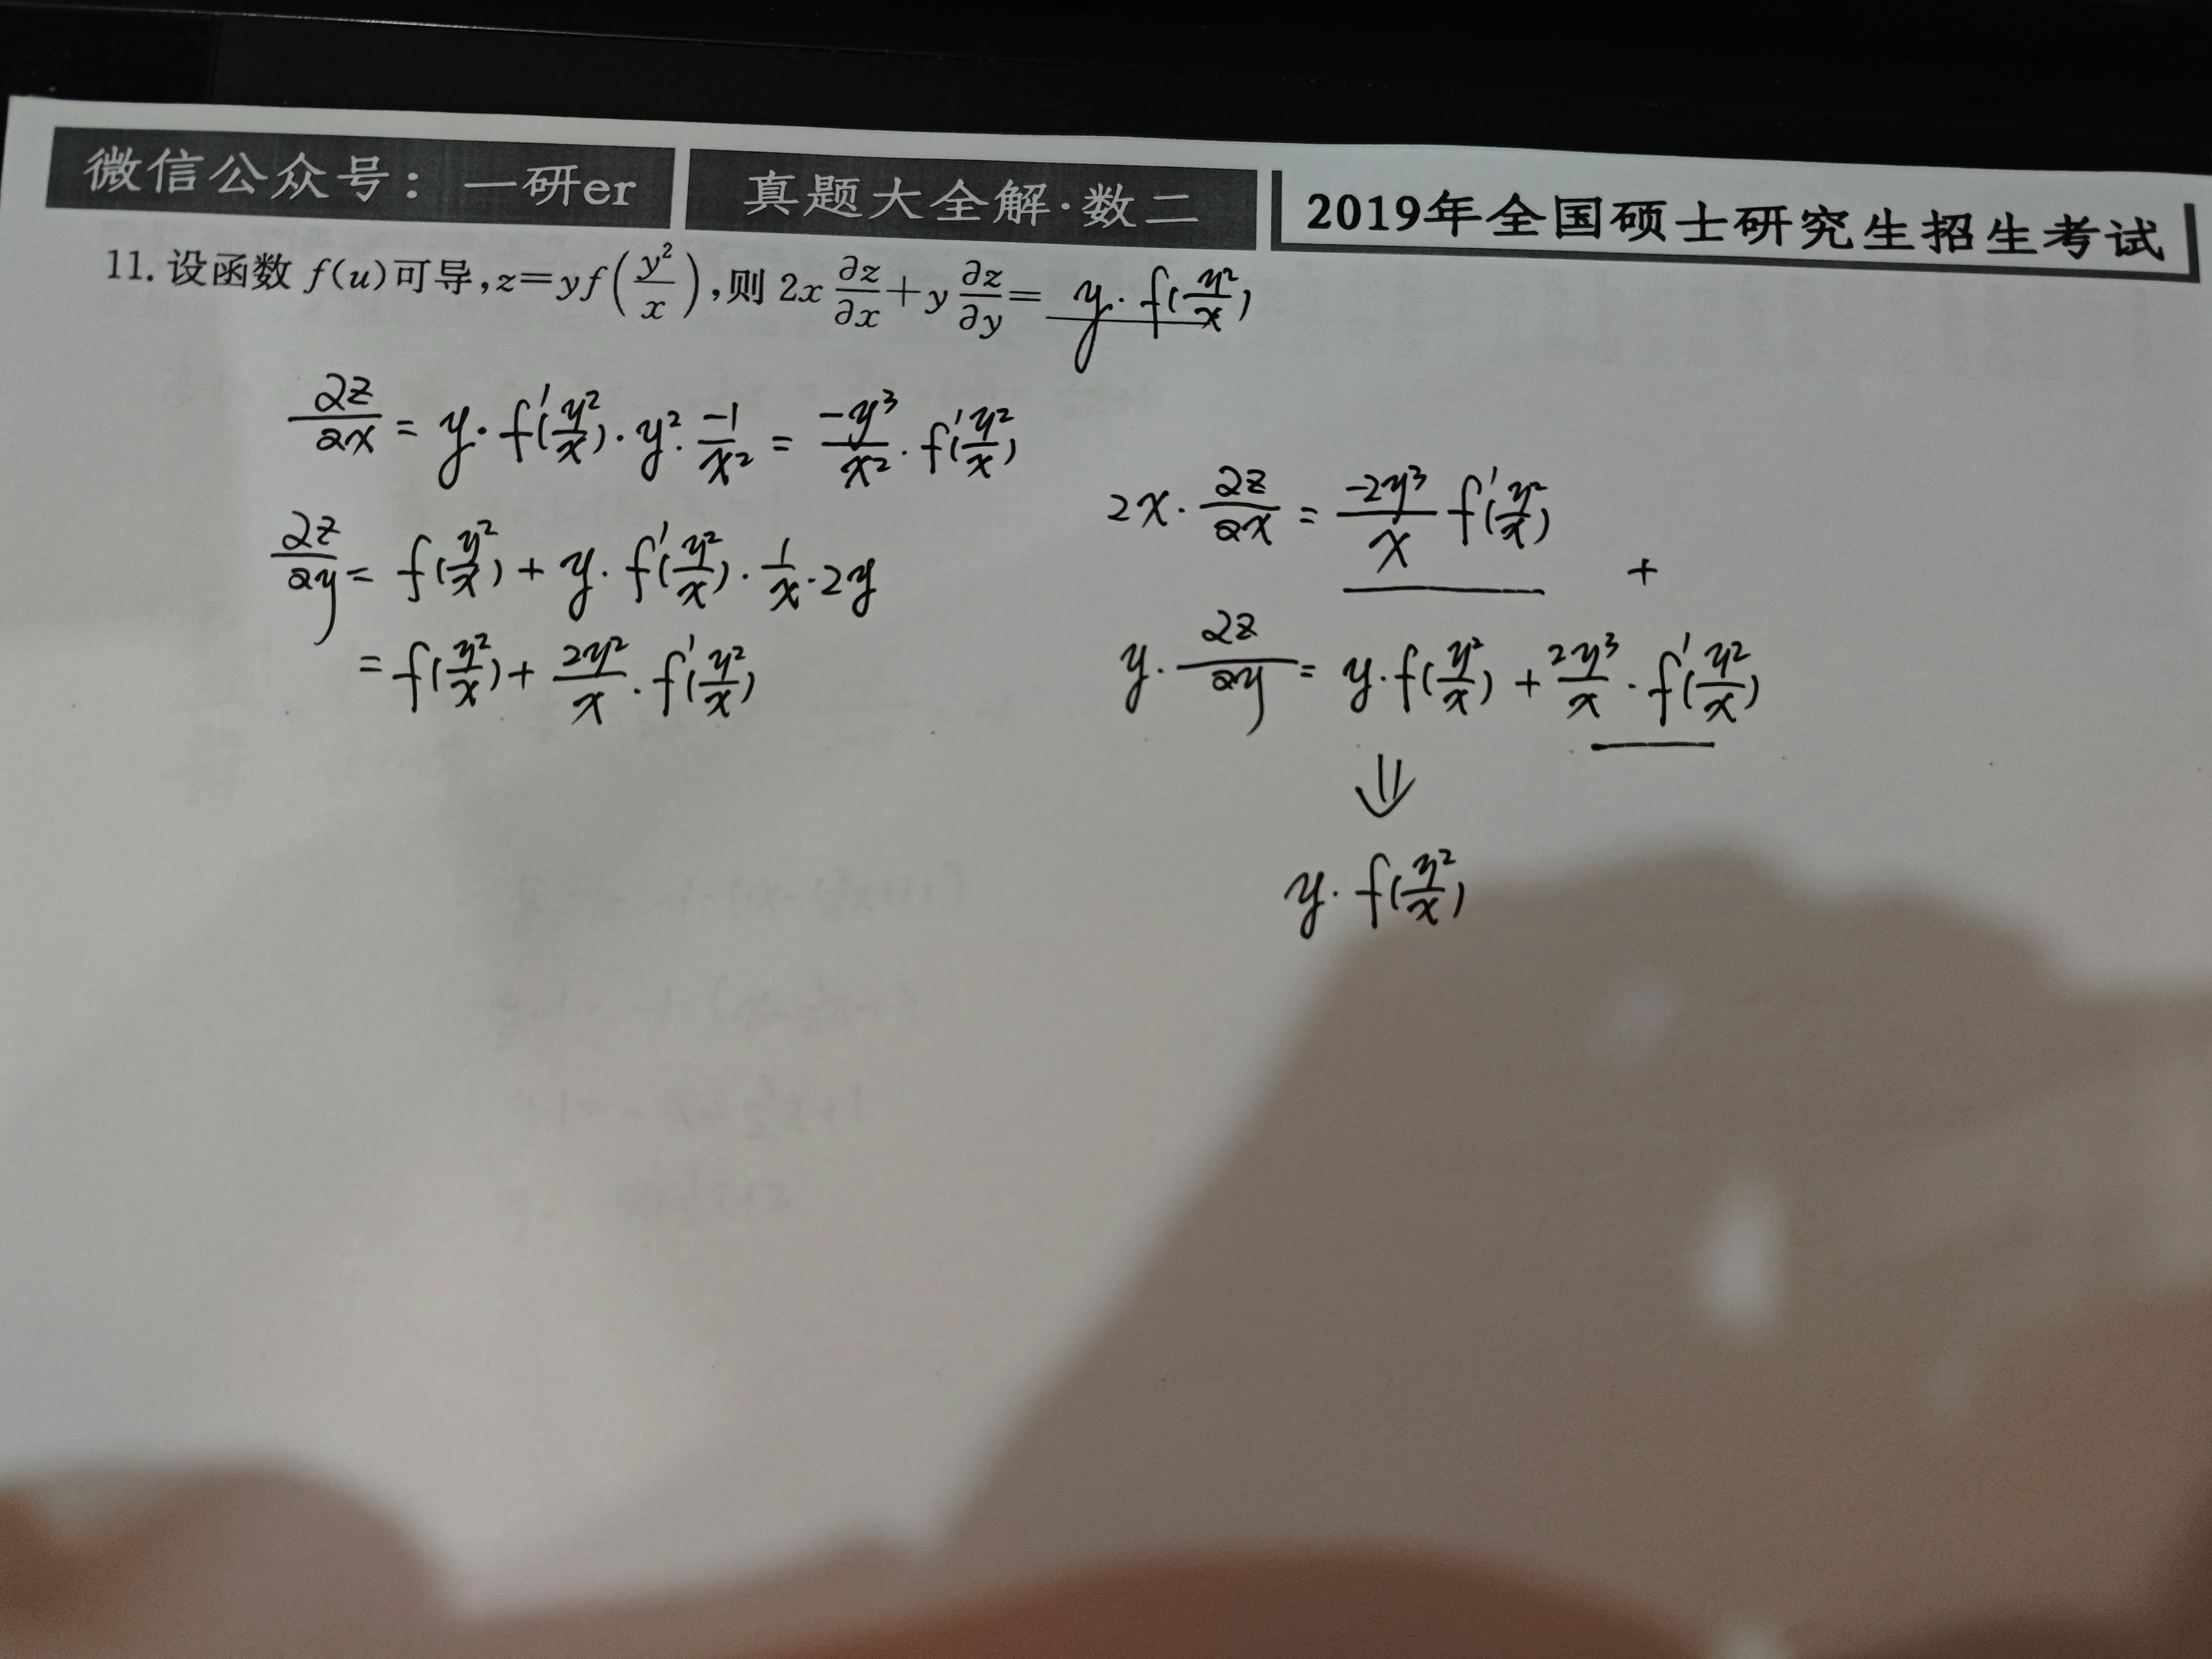 微信公众号：一研er 真题大全解·数二 2019年全国硕士研究生招生考试
11. 设函数 f(u)可导,z=yf(y²/x),则 2x ∂z/∂x+y ∂z/∂y= y·f(y²/x)
∂z/∂x = y·f'(y²/x)·y²·-1/x² = -y³/x²·f'(y²/x)
∂z/∂y = f(y²/x) + y·f'(y²/x)·1/x·2y
= f(y²/x) + 2y²/x·f'(y²/x)
2x·∂z/∂x = -2y³/x f'(y²/x)
+
y·∂z/∂y = y·f(y²/x) + 2y³/x·f'(y²/x)
⇓
y·f(y²/x)